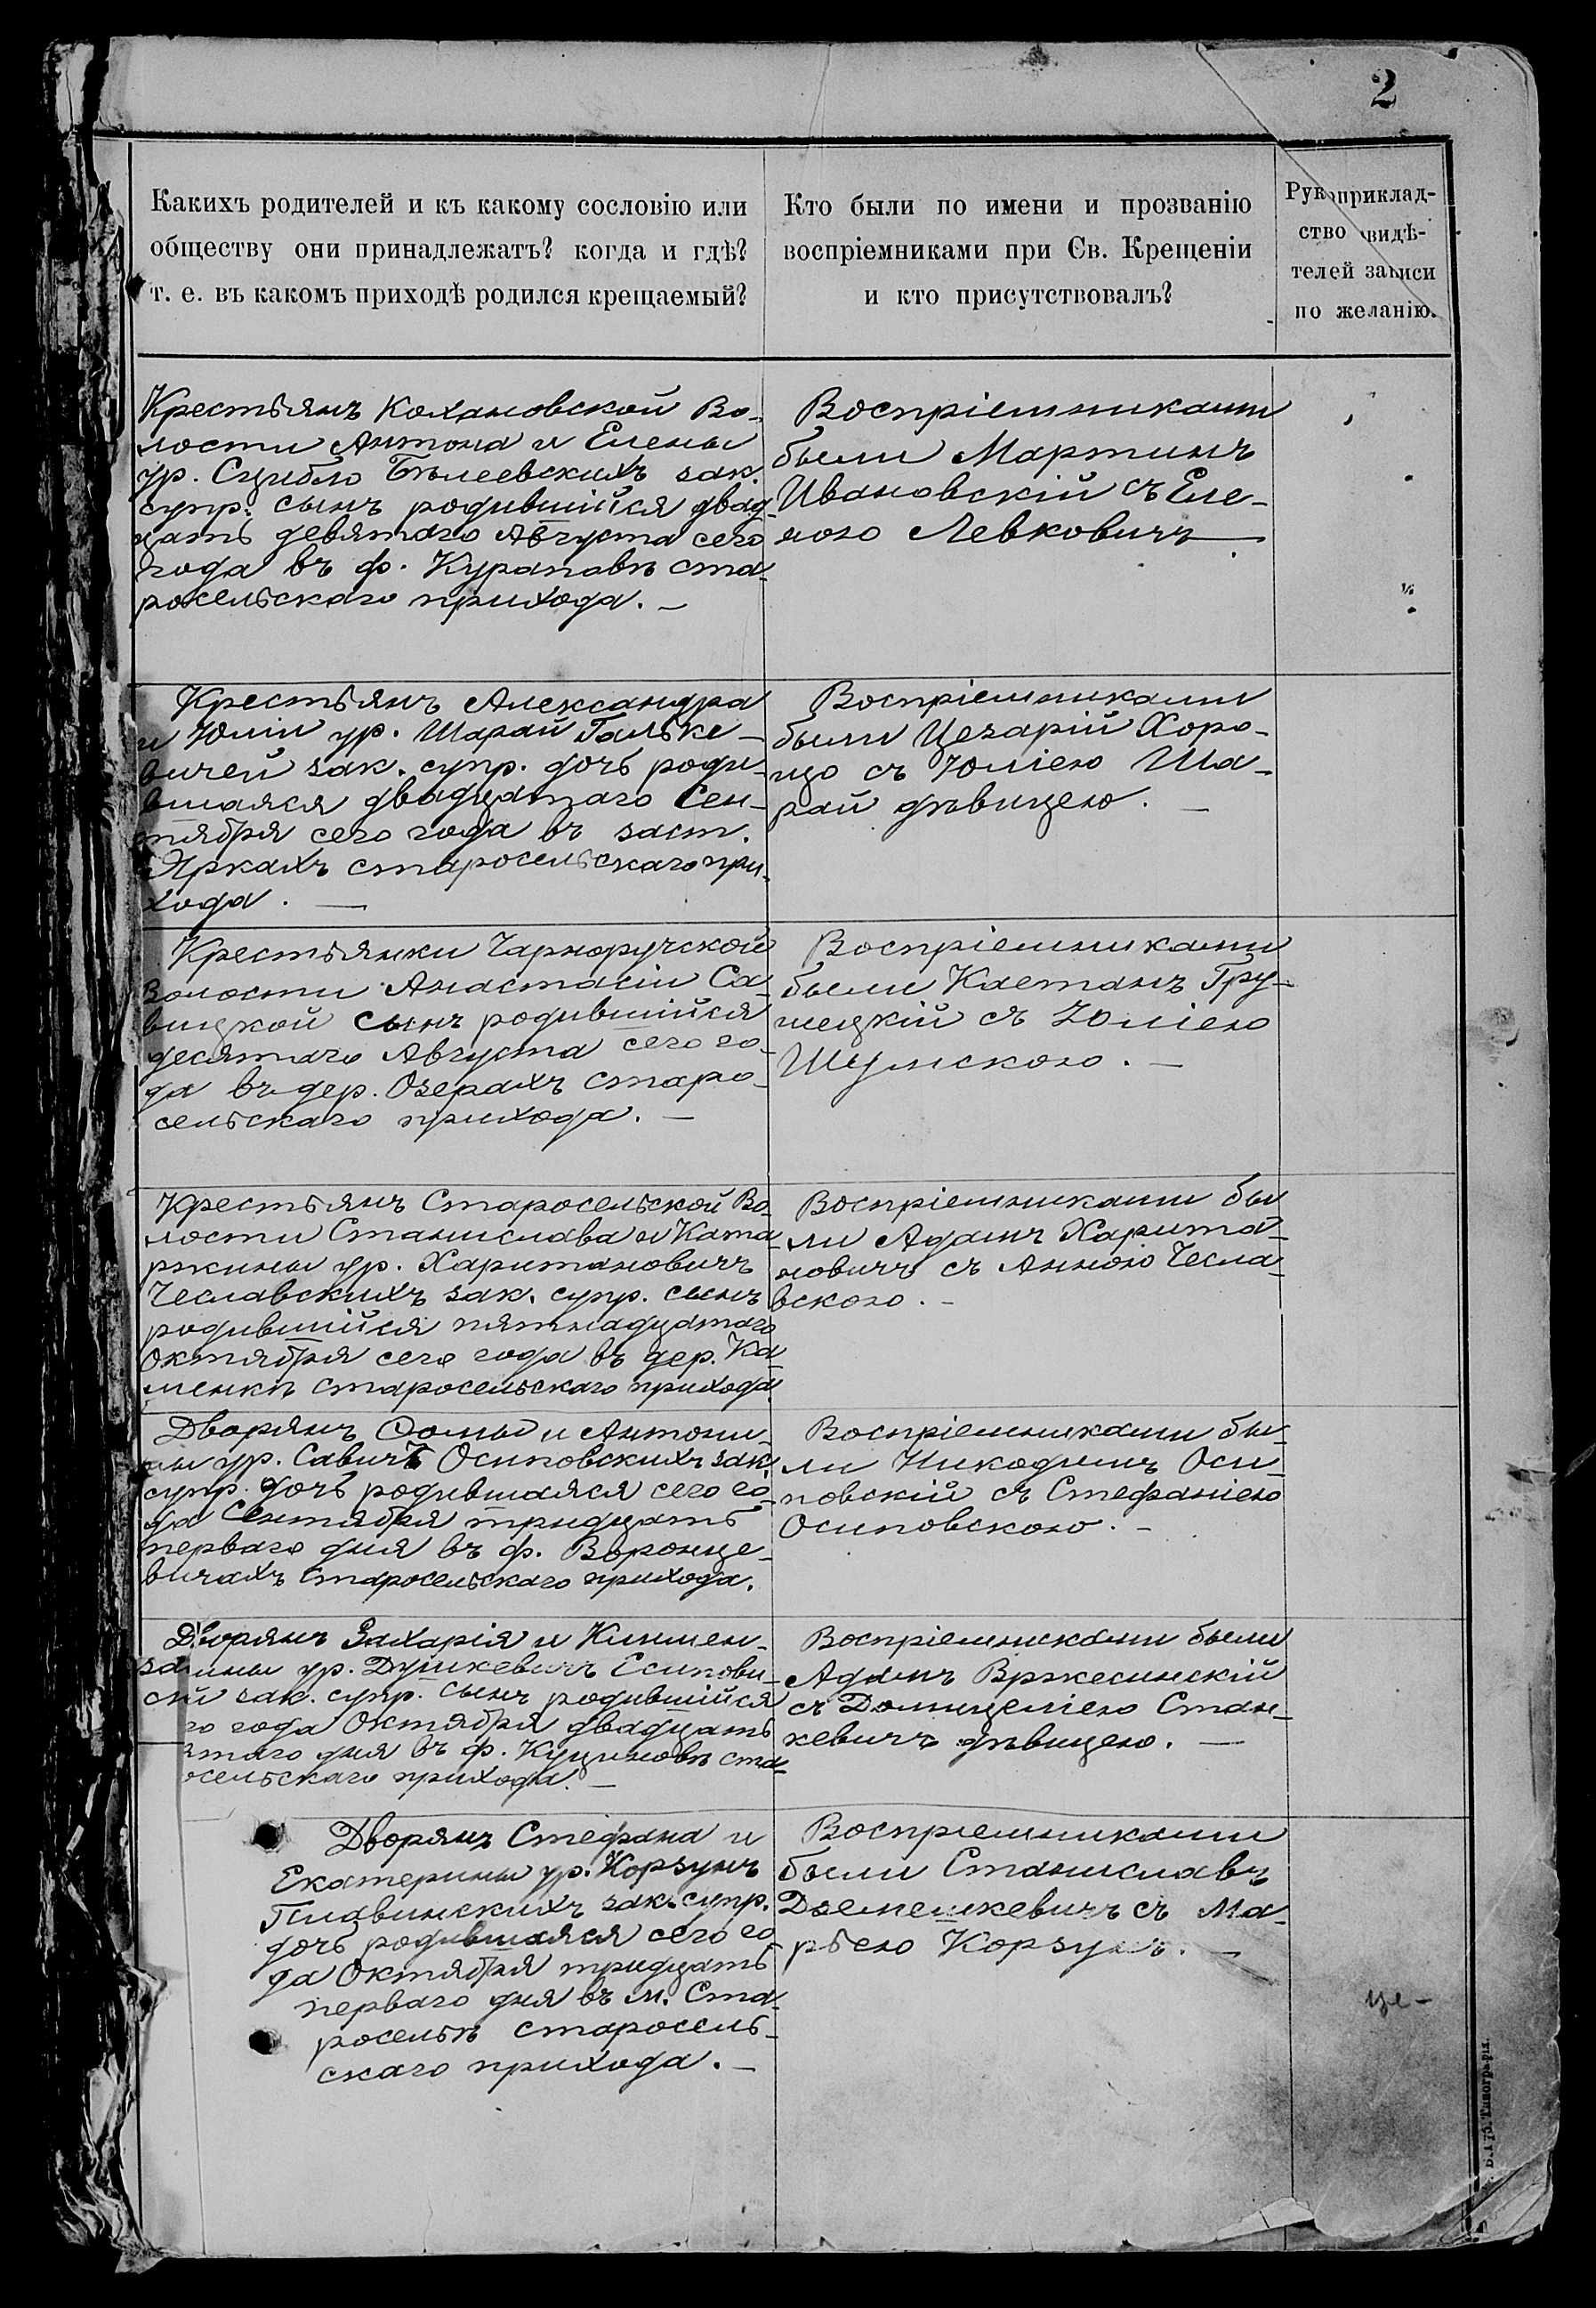 2
Какихъ родителей и къ какому сословію или
обществу они принадлежатъ? когда и гдѣ?
т. е. въ какомъ приходѣ родился крещаемый?
Кто были по имени и прозванію
воспріемниками при Св. Крещеніи
и кто присутствовалъ?
Рукоприклад-
ство свидѣ-
телей записи
по желанію.
Крестьянъ Кохановской Во-
лости Антона и Елены
ур. Сцибло Бѣлеевскихъ зак.
супр. сынъ родившійся двад-
цать девятаго Августа сего
года въ ф. Кураповѣ ста-
росельскаго прихода. —
Воспріемниками
были Мартинъ
Ивановскій съ Еле-
ною Левковичъ
Крестьянъ Александра
и Юліи ур. Шарай Галъке-
вичей зак. супр. дочь роди-
вшаяся двадцатаго Сен-
тября сего года въ заст.
Яркахъ старосельскаго при-
хода. —
Воспріемниками
были Цезарій Хоро-
що съ Юліею Ша-
рай дѣвицею. —
Крестьянки Чарноручской
волости Анастасіи Са-
вицкой сынъ родившійся
десятаго Августа сего го-
да въ дер. Озерахъ старо-
сельскаго прихода. —
Воспріемниками
были Каетанъ Гру-
шецкій съ Юліею
Шумскою. —
Крестьянъ Старосельской Во-
лости Станислава и Ката-
ржины ур. Харитановичъ
Чеславскихъ зак. супр. сынъ
родившійся пятнадцатаго
Октября сего года въ дер. Ка-
менкѣ старосельскаго прихода
Воспріемниками бы
ли Адамъ Харита-
новичъ съ Анною Чесла-
вскою. —
Дворянъ Ѳомы и Антони-
ны ур. Савичъ Осиповскихъ зак.
супр. дочь родившаяся сего го-
да Сентября тридцать
перваго дня въ ф. Воронце-
вичахъ старосельскаго прихода.
Воспріемниками бы-
ли Никодимъ Оси-
повскій съ Стефаніею
Осиповскою. —
Дворянъ Захарія и Киншен-
заины ур. Душкевичъ Есипови-
сынъ родившійся
го года Октября двадцать
таго дня въ ф. Куциновѣ ста-
осельскаго прихода. —
Воспріемниками были
Адамъ Вржесинскій
съ Домицеліею Стан-
кевичъ дѣвицею. —
Дворянъ Стефана и
Екатерины ур. Корзунъ
Глдавинскихъ зак. супр.
дочь родившаяся сего го
да Октября тридцать
перваго дня въ м. Ста-
росельѣ старосель-
скаго прихода. —
Воспріемниками
были Станиславъ
съ Ма-
рьею Корзунъ. —
це-